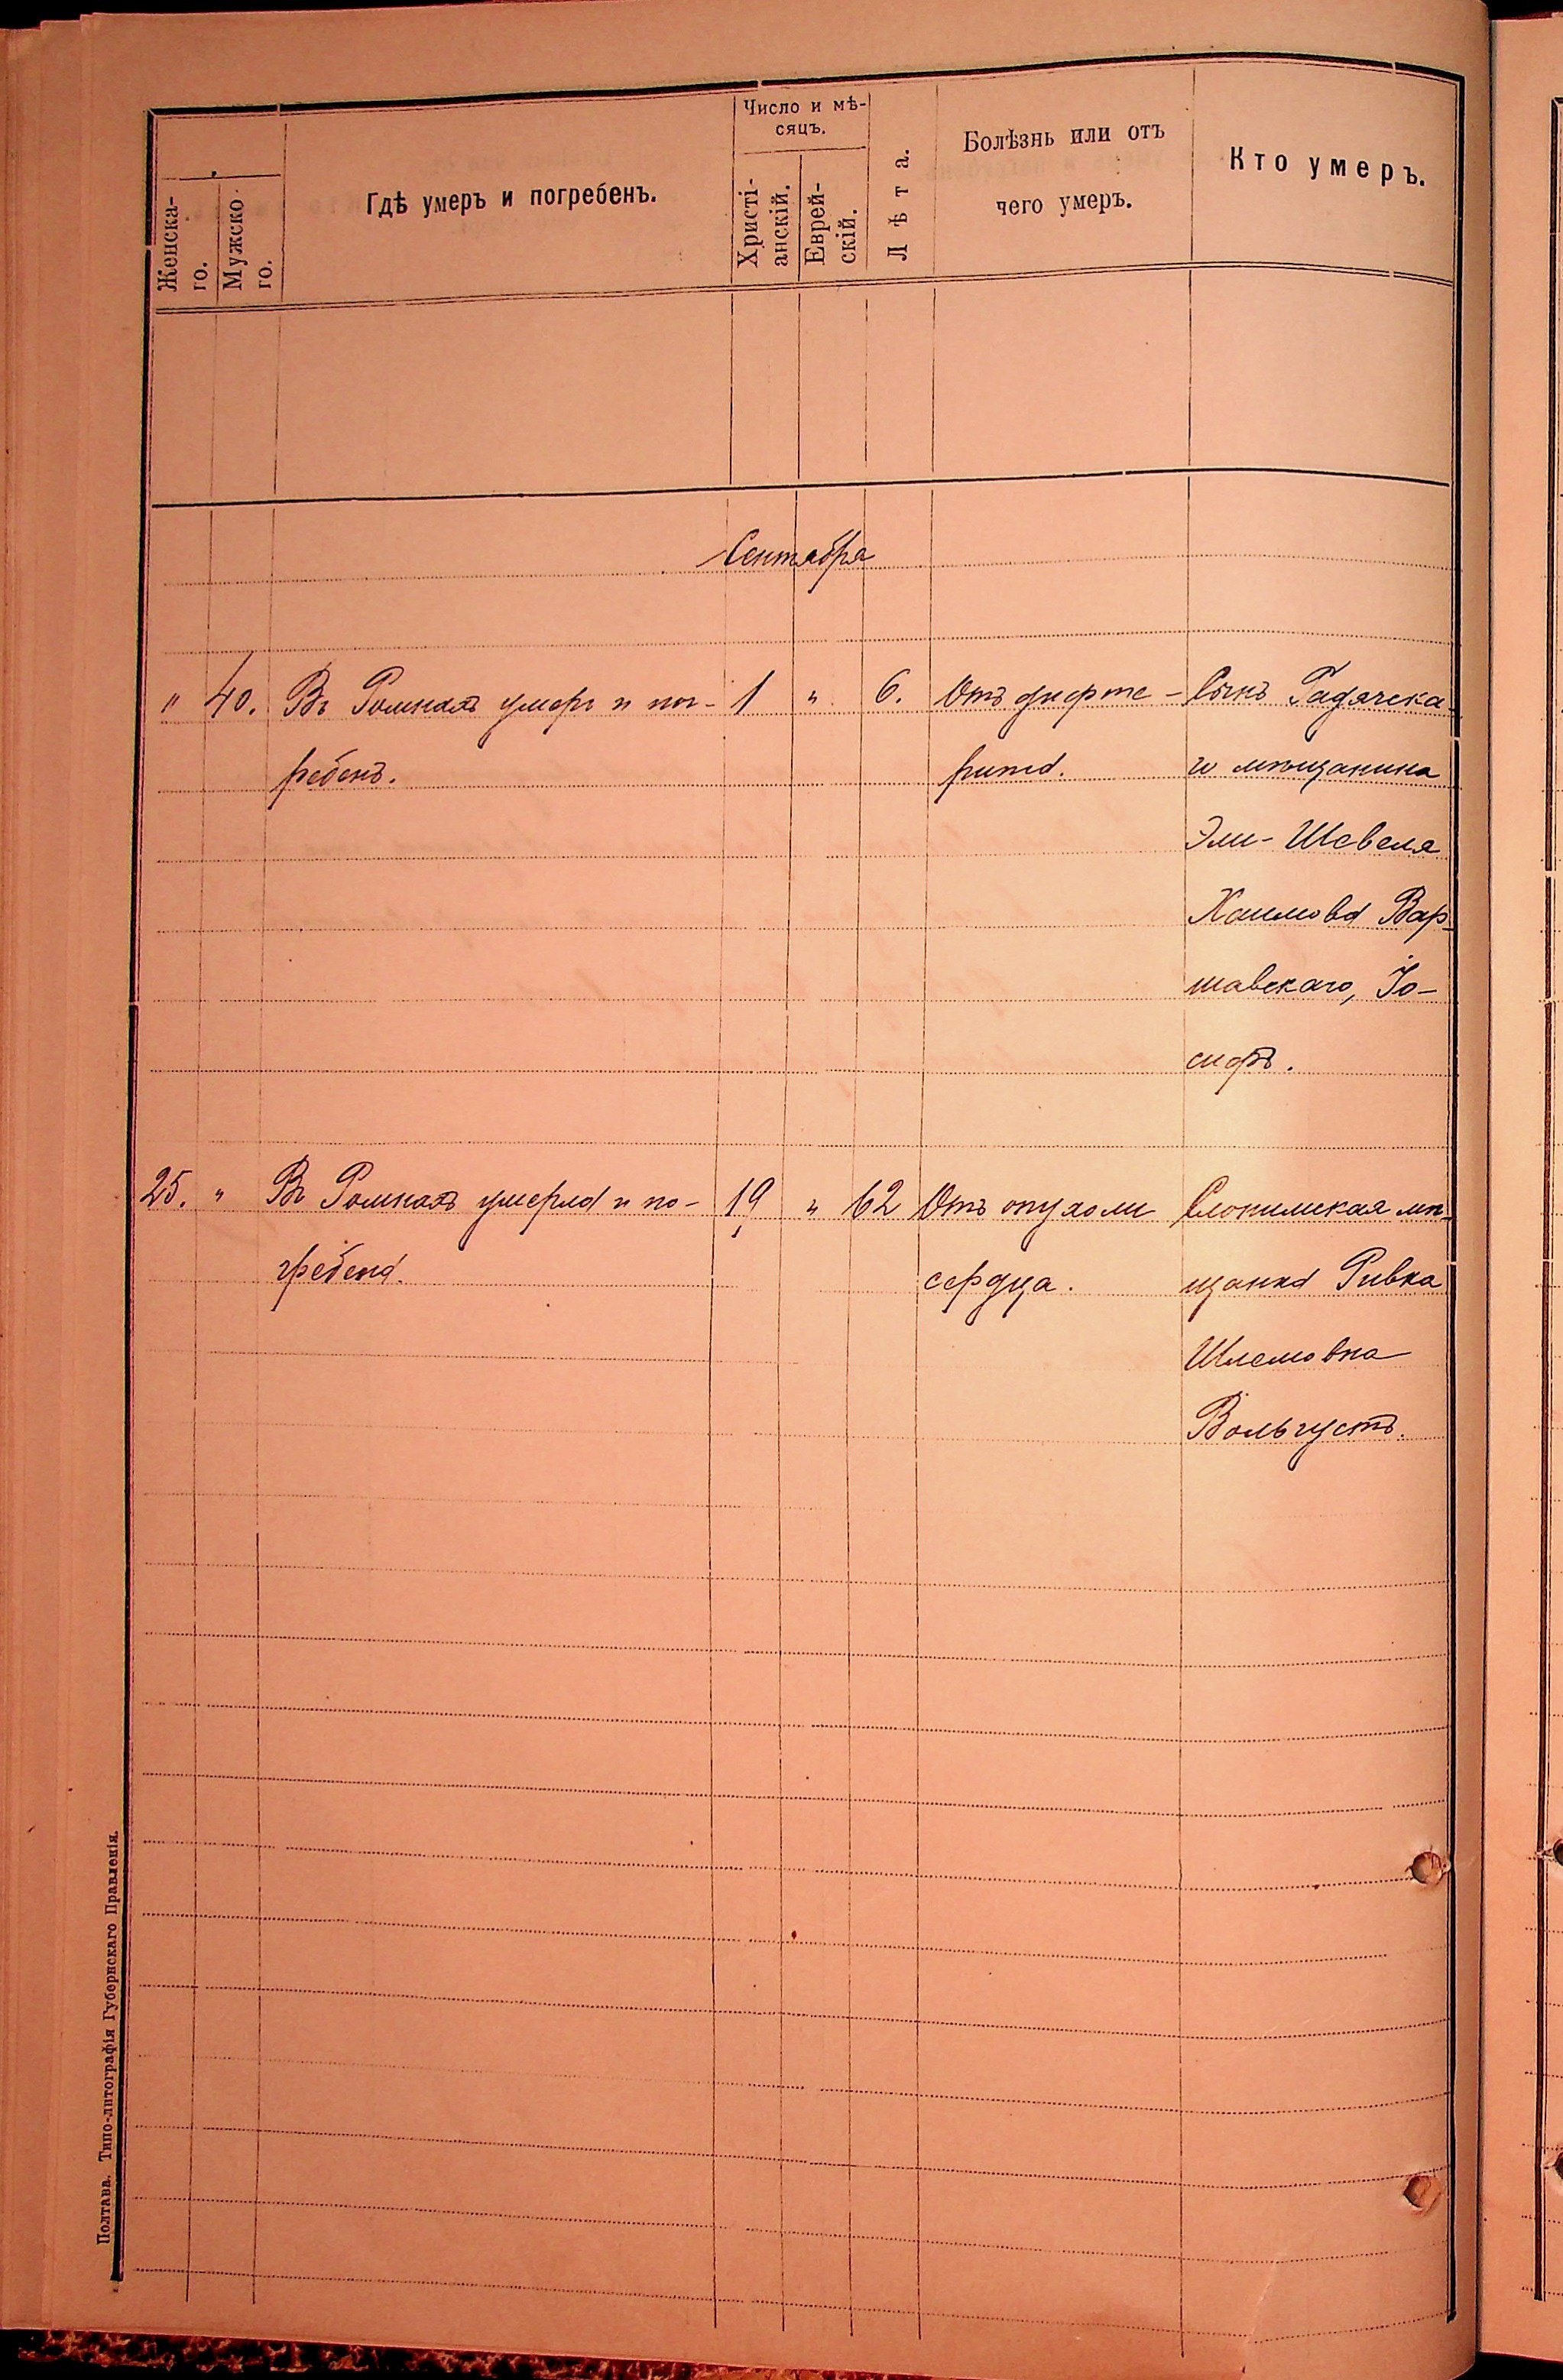 Женска-
го.
Мужско
го.
Гдѣ умеръ и погребенъ.
Число и мѣ-
сяцъ.
Христі-
анскій.
Еврей-
скій.
Лѣта.
Болѣзнь или отъ
чего умеръ.
Кто умеръ.
Сентября
" 40. Въ Ромнахъ умеръ и пог- 1 " 6. Отъ дифте- Сынъ Гадячска-
ребенъ. рита. го мѣщанина
Эли-Шевеля
Хаимова Вар-
шавскаго, Іо-
сифъ.
25. " Въ Ромнахъ умерла и по- 19 " 62 Отъ опухоли Слонимская мѣ-
гребена. сердца. щанка Ривка
Шлемовна
Вольгустъ.
Полтава. Типо-литографія Губернскаго Правленія.